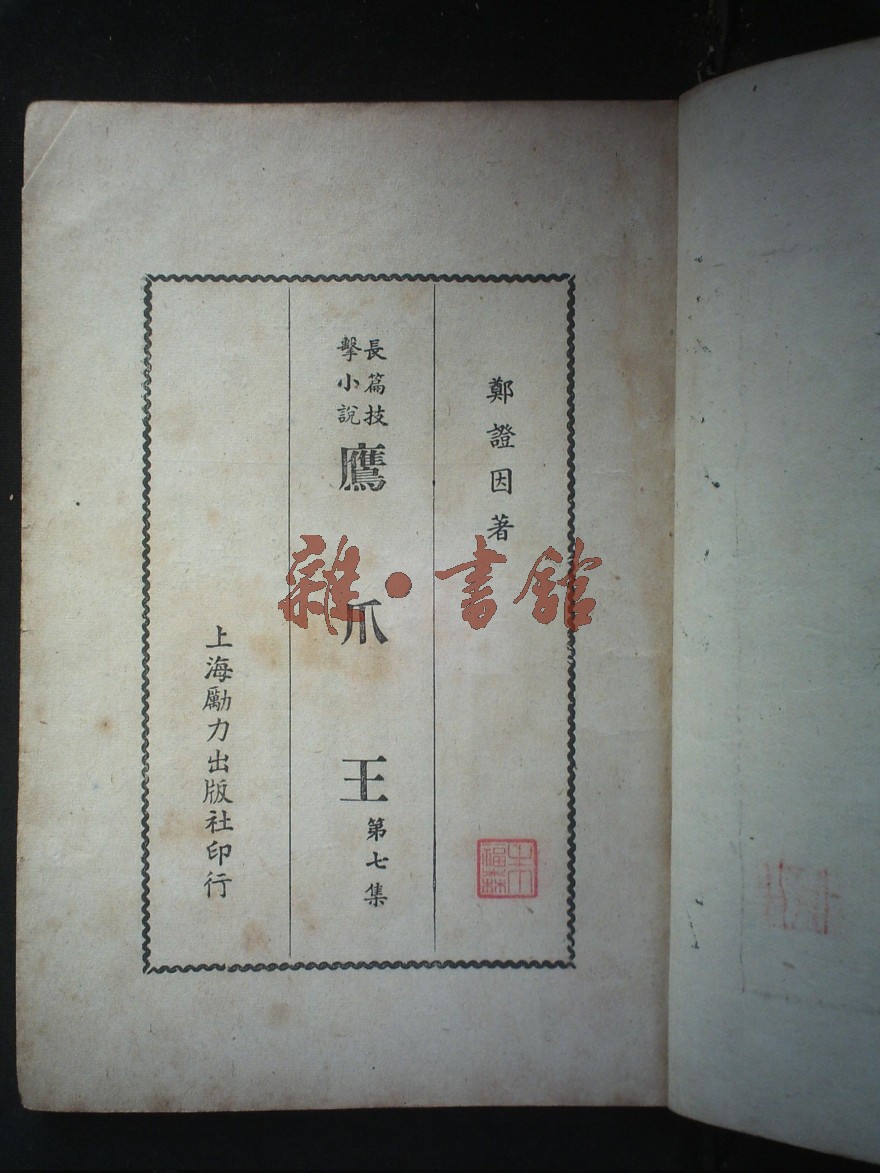 鄭證因著
長篇技
擊小說
鷹爪王
第七集
上海勵力出版社印行
雜·書館
朱福森